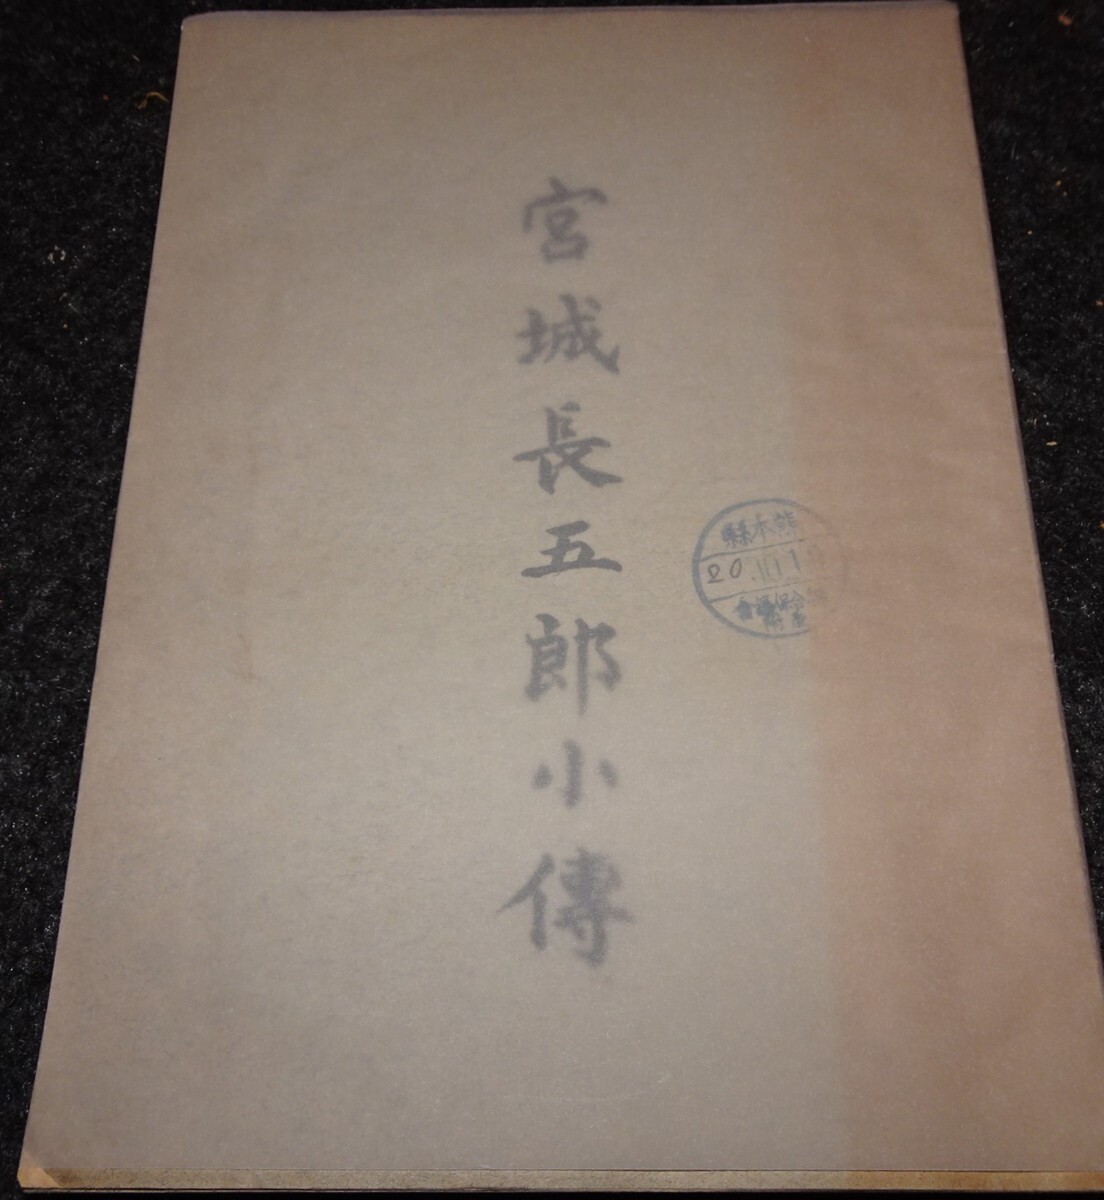 宮城長五郎小傳
縣本熊
20.10.1